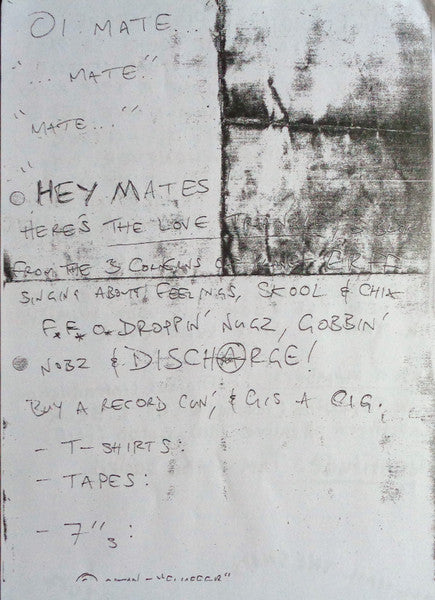 OI MATE...
"... MATE"
"MATE..."
HEY MATES
HERE'S THE LOVE
FROM THE 3
SINGING ABOUT FEELINGS, SKOOL & CHIX
F.F.O. DROPPIN' NUGZ, GOBBIN'
NOBZ & DISCHARGE!
BUY A RECORD CUN', & GIS A CIG.
- T-SHIRTS:
- TAPES:
- 7"s: